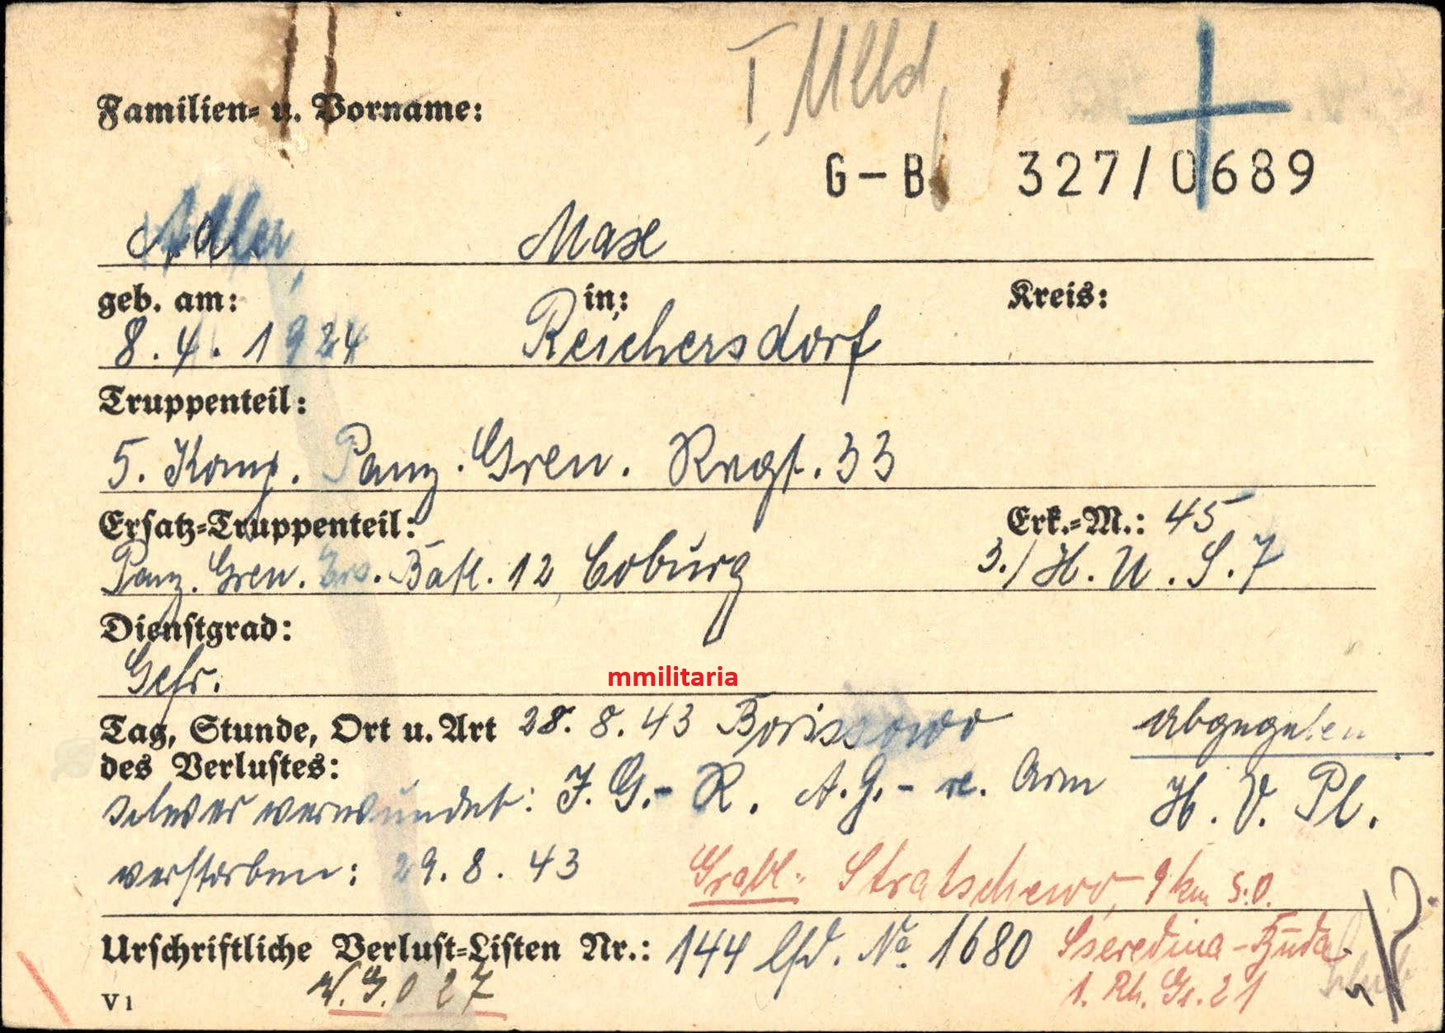 Familien- u. Vorname:
G-B 327/0689
Adler, Max
geb. am: in: Kreis:
8.4.1924 Reichersdorf
Truppenteil:
5. Komp. Panz. Gren. Regt. 33
Ersatz-Truppenteil: Erk.-M.: 45
Panz. Gren. Ers. Batl. 12, Coburg 3./H.U.S.7
Dienstgrad:
Gefr.
mmilitaria
Tag, Stunde, Ort u. Art 28.8.43 Borissowo abgegeben
des Verlustes:
schwer verwundet: J.G.- R. A.G.- re. Arm H.V.Pl.
verstorben: 29.8.43 Grabl: Stratschewo, 9 km S.O.
Urschriftliche Verlust-Listen Nr.: 144 lfd. No 1680 Sseredina-Buda
1. Rh. Gr. 21
V 1